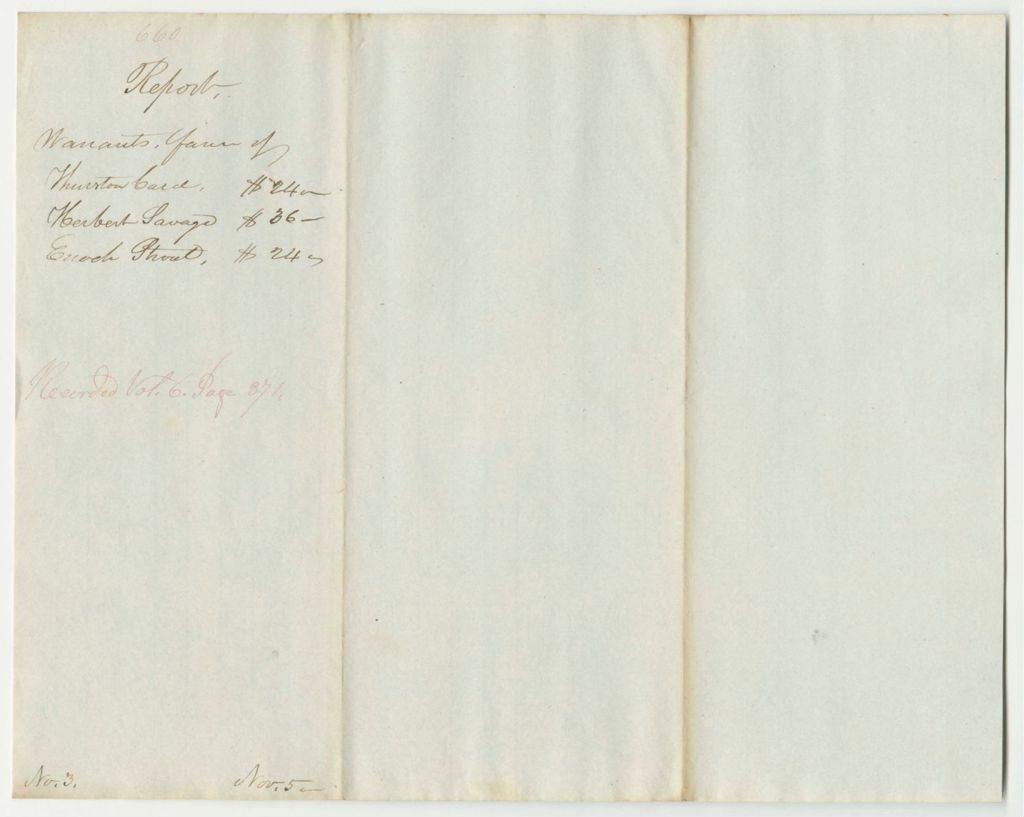 660
Report,
Warrants, favor of
Thurston Card, $24—
Herbert Savage $36—
Enoch Strout, $24—
Recorded Vol. 6. Page 371.
No. 3. Nov. 5—